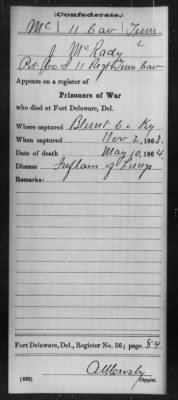 (Confederate.)
Mc 11 Cav Tenn
J McRady
Pvt Co I 11 Regt Tenn Cav
Appears on a register of
Prisoners of War
who died at Fort Delaware, Del.
Where captured Blunt Co Ky
When captured Nov 2, 1863.
Date of death May 10, 1864
Disease Inflam of Lungs
Remarks:
Fort Delaware, Del., Register No. 56; page 84
(698) Copyist.